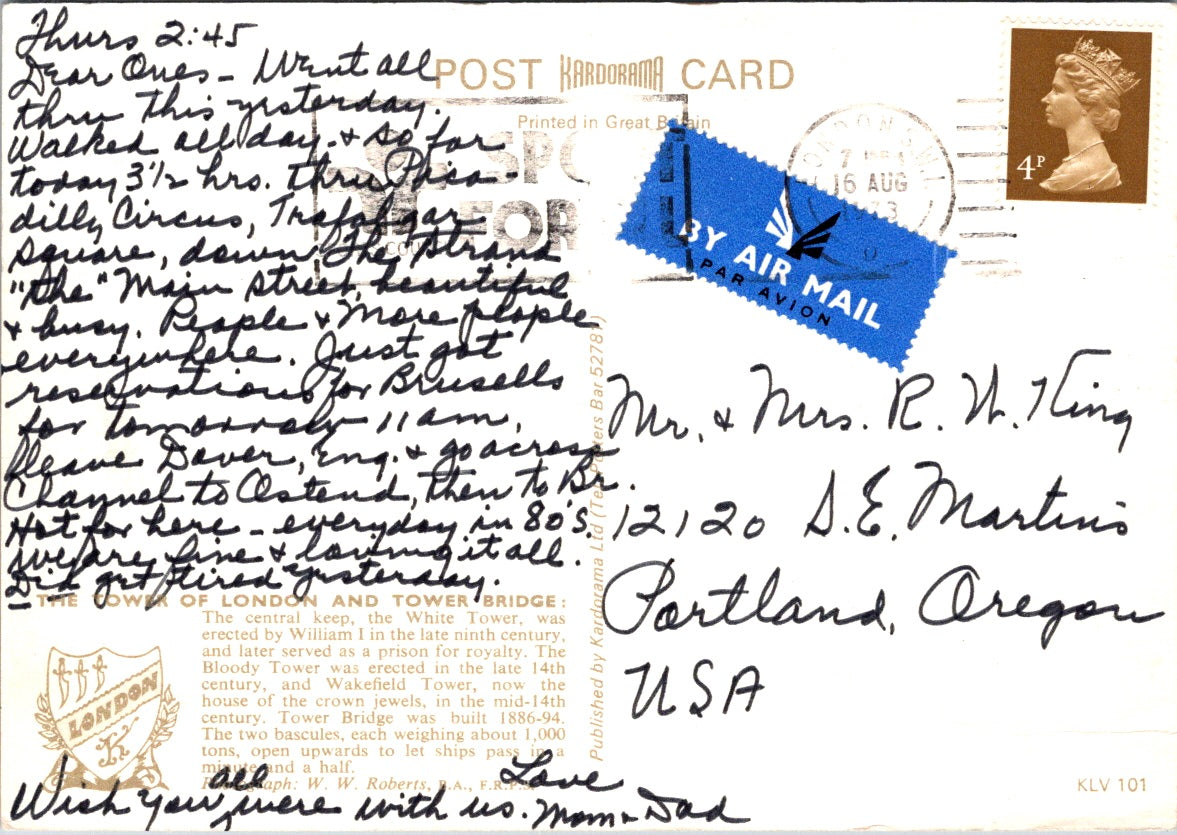 Thurs 2:45
Dear Ones - Went all
thru this yesterday.
Walked all day. & so far
today 3 1/2 hrs. thru Pica-
dilly Circus, Trafalgar
Square, down The Strand
"the" Main street, beautiful
& busy. People & More people
everywhere. Just got
reservations for Brusells
for tomorrow 11 am.
Leave Dover, Eng. & go across
Channel to Ostend, then to Br.
Hot for here - everyday in 80's.
We are fine & loving it all.
Did get tired yesterday.
THE TOWER OF LONDON AND TOWER BRIDGE:
The central keep, the White Tower, was
erected by William I in the late ninth century,
and later served as a prison for royalty. The
Bloody Tower was erected in the late 14th
century, and Wakefield Tower, now the
house of the crown jewels, in the mid-14th
century. Tower Bridge was built 1886-94.
The two bascules, each weighing about 1,000
tons, open upwards to let ships pass in a
minute and a half.
Photograph: W. W. Roberts, B.A., F.R.P.S.
LONDON
K
Wish you all were with us. Love
Mom & Dad
POST KARDORAMA CARD
Printed in Great Britain
FOR
LONDON
16 AUG
1973
4P
BY AIR MAIL
PAR AVION
Published by Kardorama Ltd (Tel. Potters Bar 52781)
Mr. & Mrs. R. W. King
12120 S.E. Martins
Portland, Oregon
USA
KLV 101